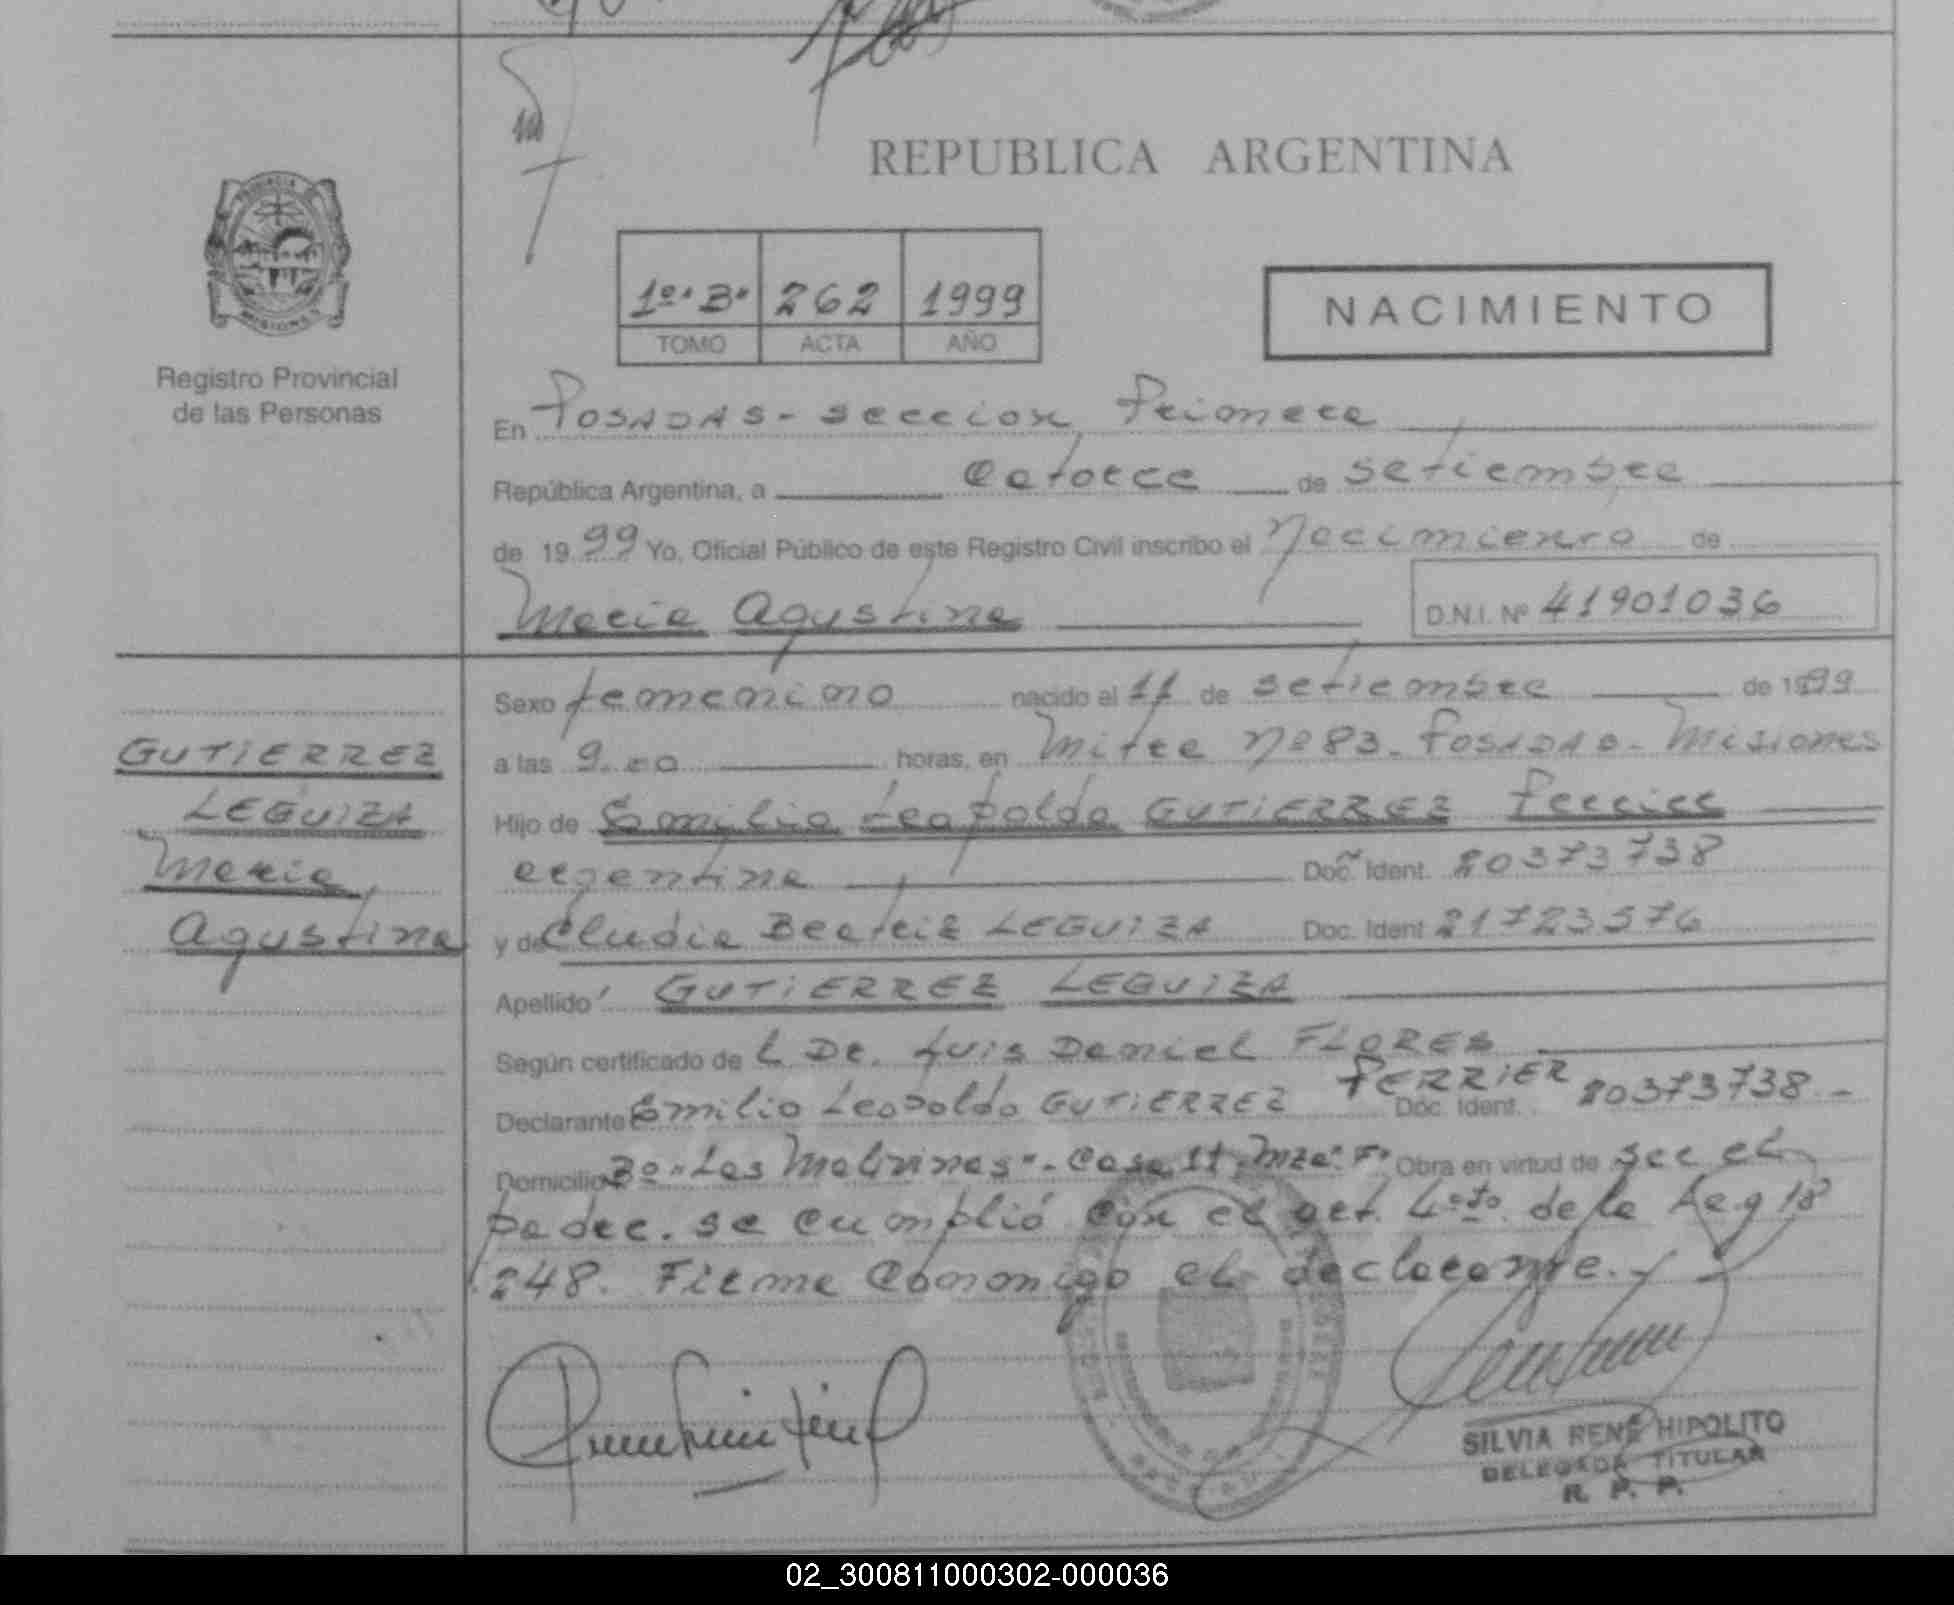 REPUBLICA ARGENTINA
1º "B" 262 1999
TOMO ACTA AÑO
NACIMIENTO
PROVINCIA
MISIONES
Registro Provincial
de las Personas
En Posadas - seccion Primera
República Argentina, a Catorce de setiembre
de 1999 Yo, Oficial Público de este Registro Civil inscribo el Nacimiento de
Maria Agustina
D.N.I. Nº 41901036
GUTIERREZ
LEGUIZA
Maria
Agustina
Sexo femenino nacido el 11 de setiembre de 1999
a las 9.00 horas, en Mitre Nº 83 - Posadas - Misiones
Hijo de Emilio Leopoldo GUTIERREZ Perrier
argentina Doc. Ident. 20373738
y de Cludia Beatriz LEGUIZA Doc. Ident 21723576
Apellido GUTIERREZ LEGUIZA
Según certificado de L Dr. Luis Daniel FLORES
Declarante Emilio Leopoldo GUTIERREZ PERRIER Doc. Ident. 20373738 -
Domicilio Bº "Las Malvinas" - Casa 11 Mza "F" Obra en virtud de ser el
padre. se cumplió con el art. 4º to. de la Ley 18
248. Firma conmigo el declarante.-
SILVIA RENÉ HIPOLITO
DELEGADA TITULAR
R. P. P.
02_300811000302-000036